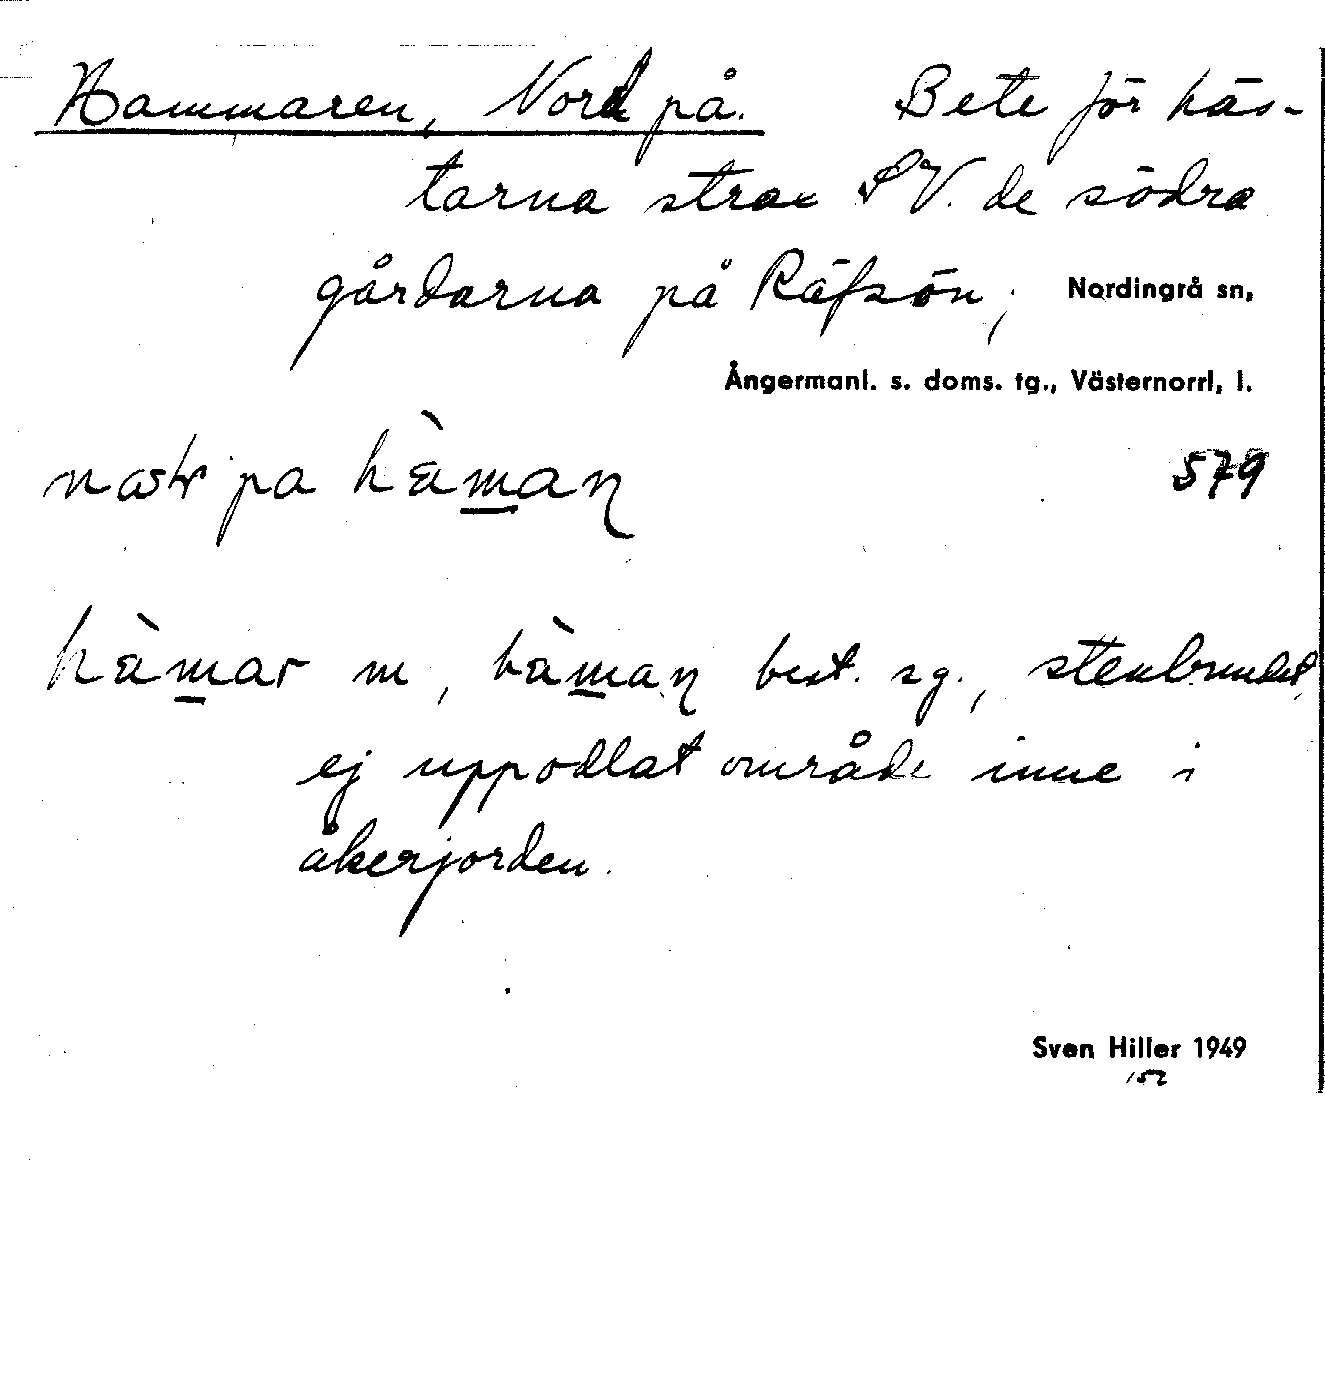 Hammaren, Nord på. Bete för häs-
tarna strax SV. de södra
gårdarna på Räfsön, Nordingrå sn,
Ångermanl. s. doms. tg., Västernorrl, l.
pa hàmaɳ 579
hàmar m, hàmaɳ best. sg., stenbundet,
ej uppodlat område inne i
åkerjorden.
Sven Hiller 1949
152